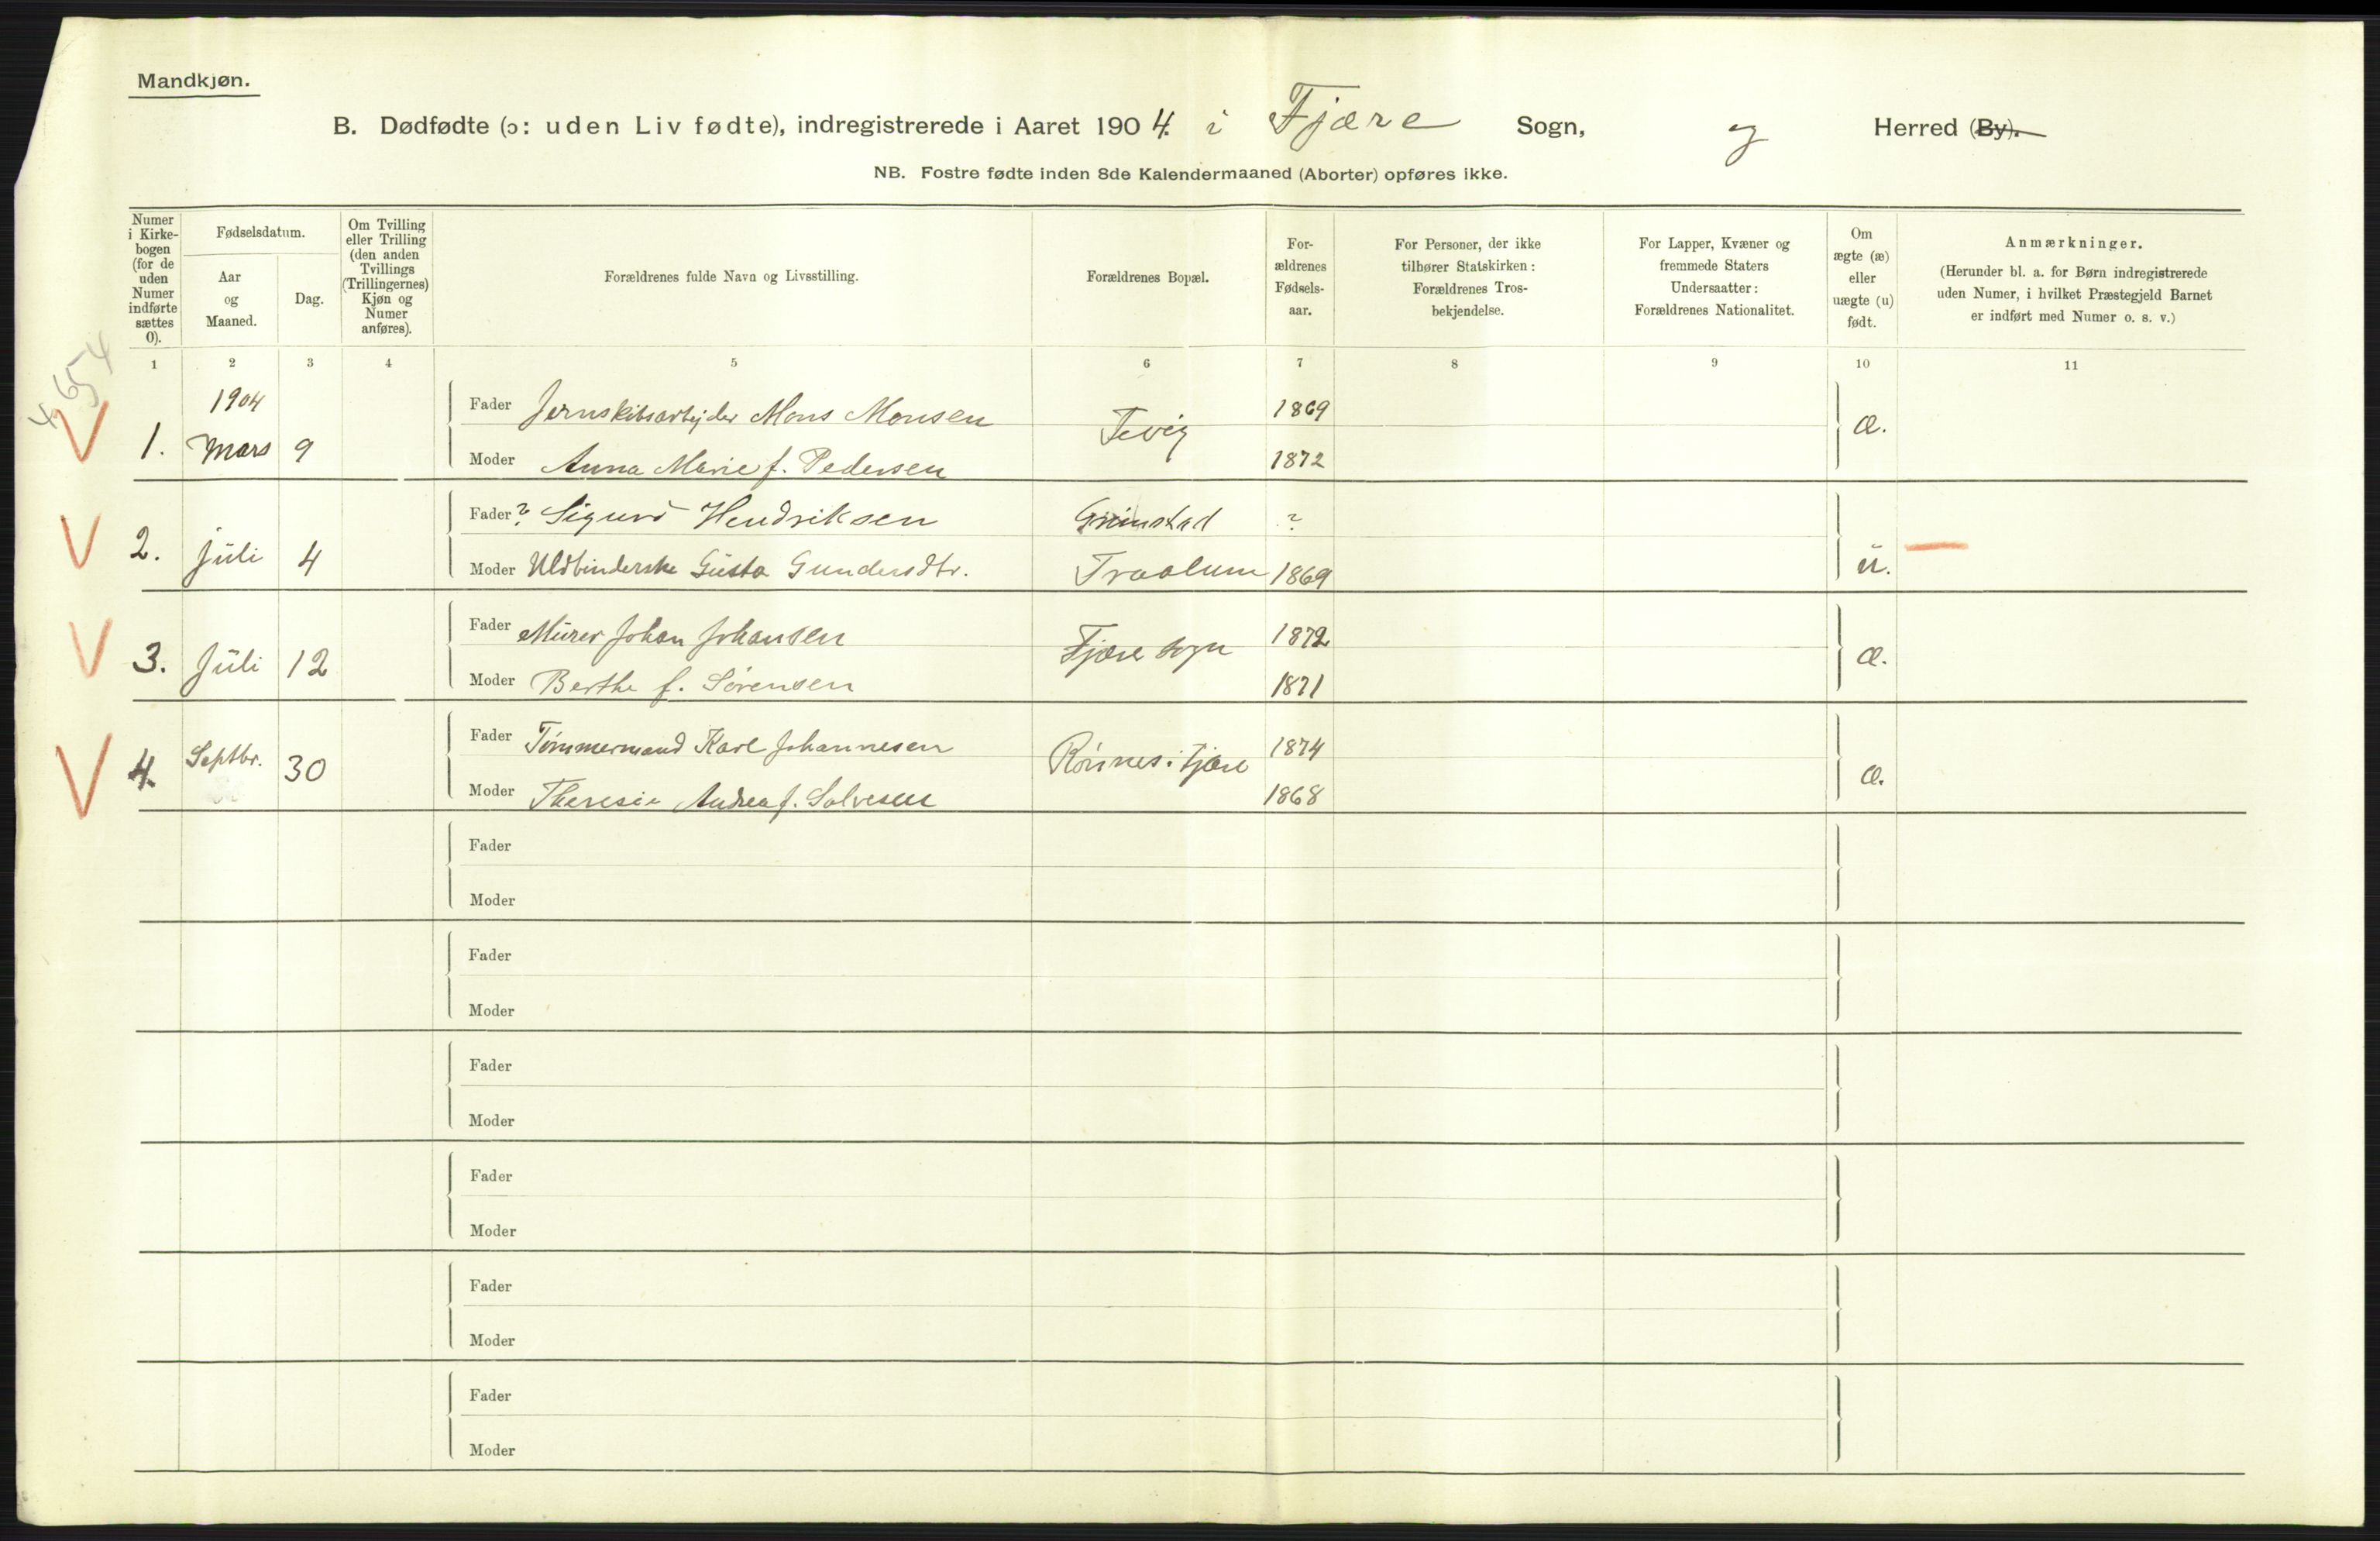 Mandkjøn.
B. Dødfødte (ɔ: uden Liv fødte), indregistrerede i Aaret 1904. i Fjære Sogn, og Herred (By).
NB. Fostre fødte inden 8de Kalendermaaned (Aborter) opføres ikke.
Numer i Kirkebogen (for de uden Numer indførte sættes 0).
Fødselsdatum.
Aar og Maaned.
Dag.
Om Tvilling eller Trilling (den anden Tvillings (Trillingernes) Kjøn og Numer anføres).
Forældrenes fulde Navn og Livsstilling.
Forældrenes Bopæl.
For-ældrenes Fødsels-aar.
For Personer, der ikke tilhører Statskirken: Forældrenes Tros-bekjendelse.
For Lapper, Kvæner og fremmede Staters Undersaatter: Forældrenes Nationalitet.
Om ægte (æ) eller uægte (u) født.
Anmærkninger.
(Herunder bl. a. for Børn indregistrerede uden Numer, i hvilket Præstegjeld Barnet er indført med Numer o. s. v.)
1 2 3 4 5 6 7 8 9 10 11
4654
1904
Fader Jernskibsarbejder Mons Monsen 1869
1. Mars 9 Fevig æ.
Moder Anna Marie f. Pedersen 1872
Fader ? Sigurd Hendriksen Grimstad ?
2. Juli 4 u.
Moder Uldbinderske Gusta Gundersdtr. Traolum 1869
Fader Murer Johan Johansen 1872
3. Juli 12 Fjære sogn æ.
Moder Berthe f. Sørensen 1871
Fader Tømmermand Karl Johannesen 1874
4. Septbr. 30 Rønnes i Fjære æ.
Moder Theresie Andrea f. Salvesen 1868
Fader
Moder
Fader
Moder
Fader
Moder
Fader
Moder
Fader
Moder
Fader
Moder